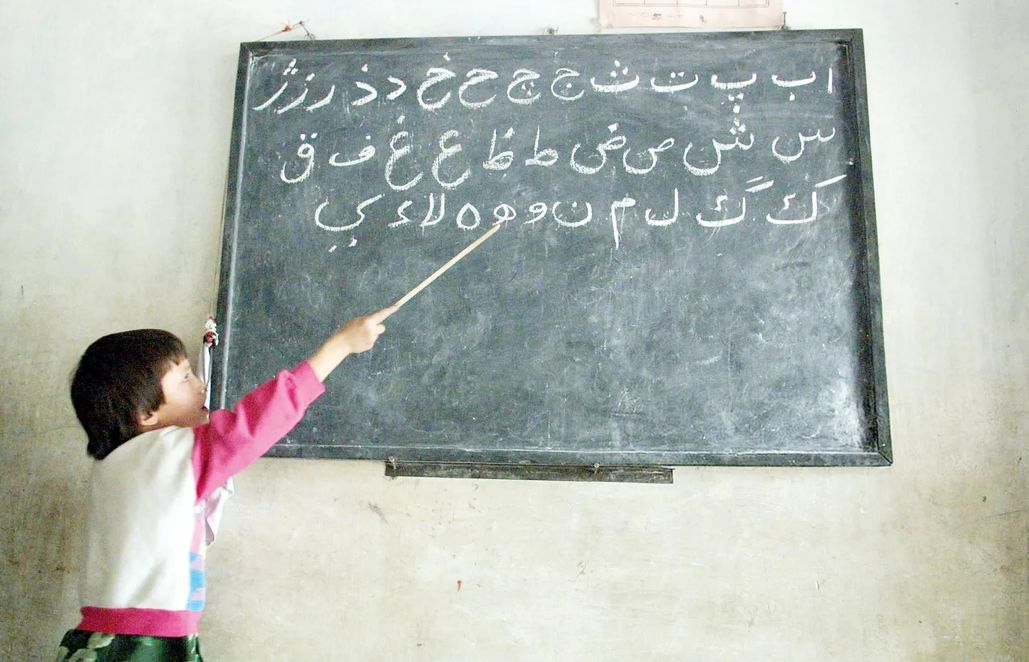 ا ب پ ت ث ج چ ح خ د ذ ر ز ژ
س ش ص ض ط ظ ع غ ف ق
ك گ ل م ن و ه ه لا ء ي